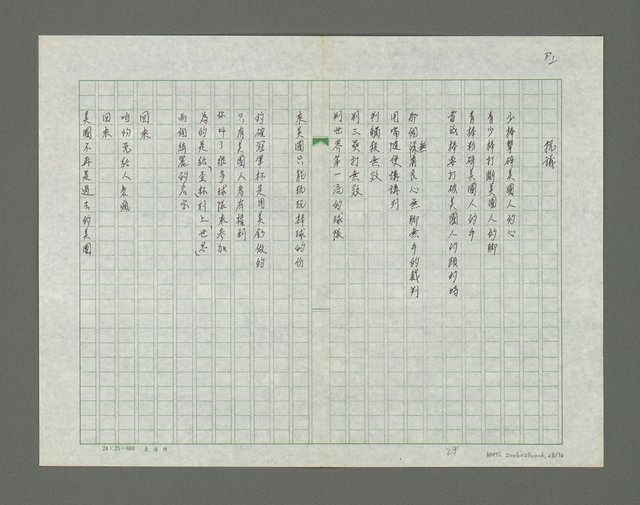 P1
抗議
少棒擊碎美國人的心
青少棒打斷美國人的腳
青棒粉碎美國人的手
當成棒要打破美國人的頭的時
那個沒有良心無腳無手的裁判
無
用嘴隨便講講到
判觸殺無效
判三壘打無效
判世界第一流的球隊
來美國只能玩玩棒球的份
的確冠軍杯是用美鈔做的
只有美國人才有權利
你叫了很多球隊來參加
為的是給盃杯刻上「世界」
兩個綺麗的名字
回來
咱的兄給人束瘋
回來
美國不再是過去的美國
24×25=600
29
NMTL 20060250006.28/90